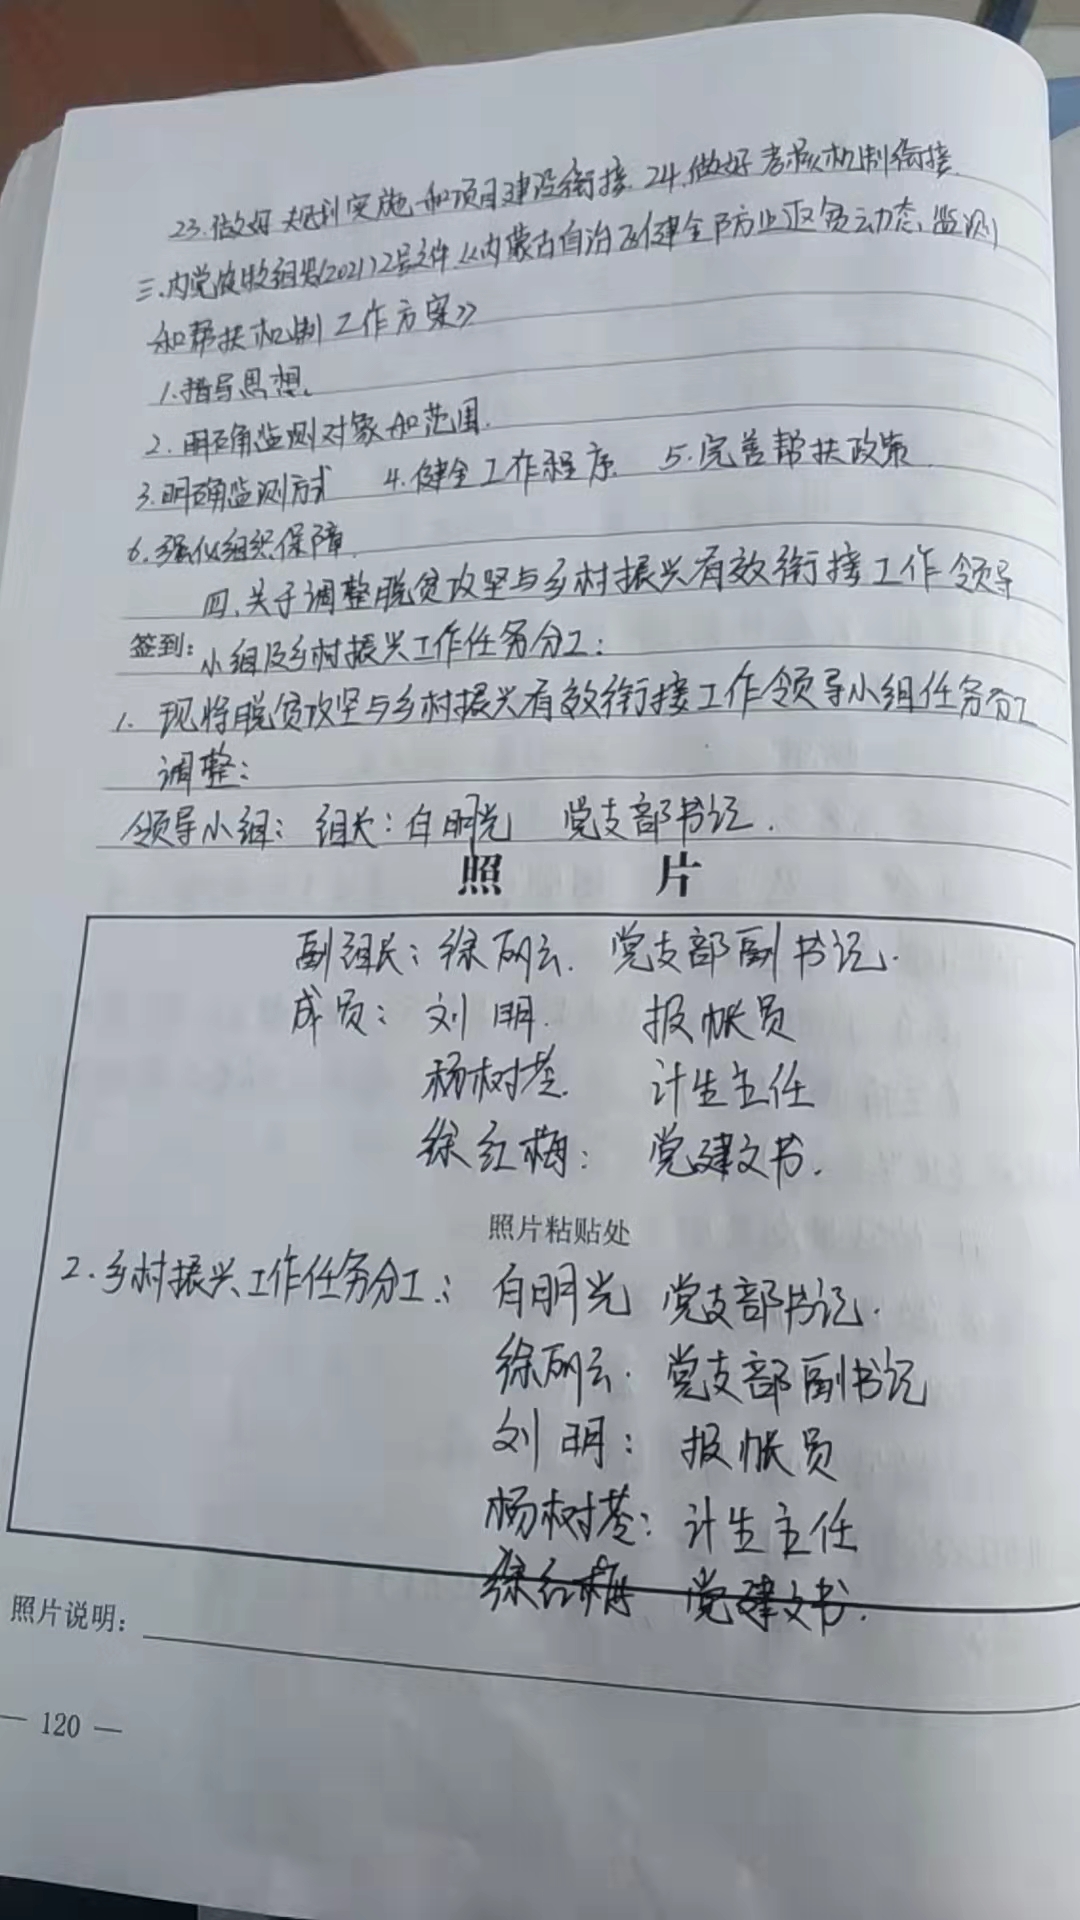 23.做好规划实施和项目建设衔接. 24.做好考核机制衔接.
三.内党农牧组发(2021)2号文件.《内蒙古自治区健全防止返贫动态监测
和帮扶机制工作方案》
1.指导思想.
2.明确监测对象和范围.
3.明确监测方式 4.健全工作程序. 5.完善帮扶政策.
6.强化组织保障.
四.关于调整脱贫攻坚与乡村振兴有效衔接工作领导
签到: 小组及乡村振兴工作任务分工:
1. 现将脱贫攻坚与乡村振兴有效衔接工作领导小组任务分工
调整:
领导小组: 组长:白明光 党支部书记.
照 片
副组长:徐丽云. 党支部副书记.
成员: 刘明. 报帐员
杨树 计生主任
徐红梅: 党建文书.
照片粘贴处
2.乡村振兴工作任务分工.: 白明光 党支部书记.
徐丽云. 党支部副书记
刘明: 报帐员
杨树: 计生主任
徐红梅 党建文书.
照片说明:
— 120 —